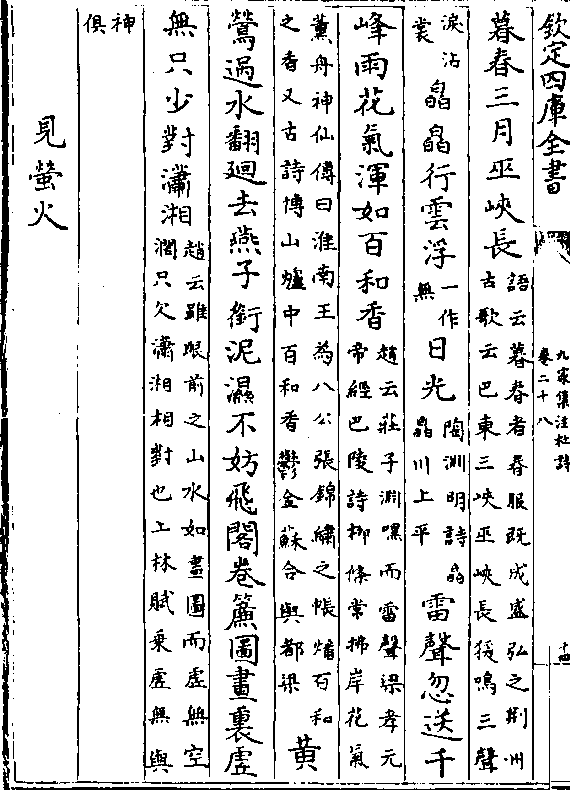 欽定四庫全書
九家集注杜詩
卷二十八
十四
暮春三月巫峽長
語云暮春者春服既成盛弘之荆州
古歌云巴東三峽巫峽長猨鳴三聲
淚沾
裳
皛皛行雲浮
一作
無
日光
陶淵明詩皛
皛川上平
雷聲忽送千
峰雨花氣渾如百和香
趙云莊子淵嘿而雷聲梁孝元
帝經巴陵詩柳條常拂岸花氣
薫舟神仙傳曰淮南王為八公張錦繡之帳燔百和
之香又古詩博山爐中百和香鬱金蘇合與都梁
黄
鶯過水翻廻去燕子銜泥濕不妨飛閣卷簾圖畫裏虛
無只少對瀟湘
趙云雖眼前之山水如畫圖而虛無空
濶只欠瀟湘相對也上林賦乗虛無與
神
俱
見螢火